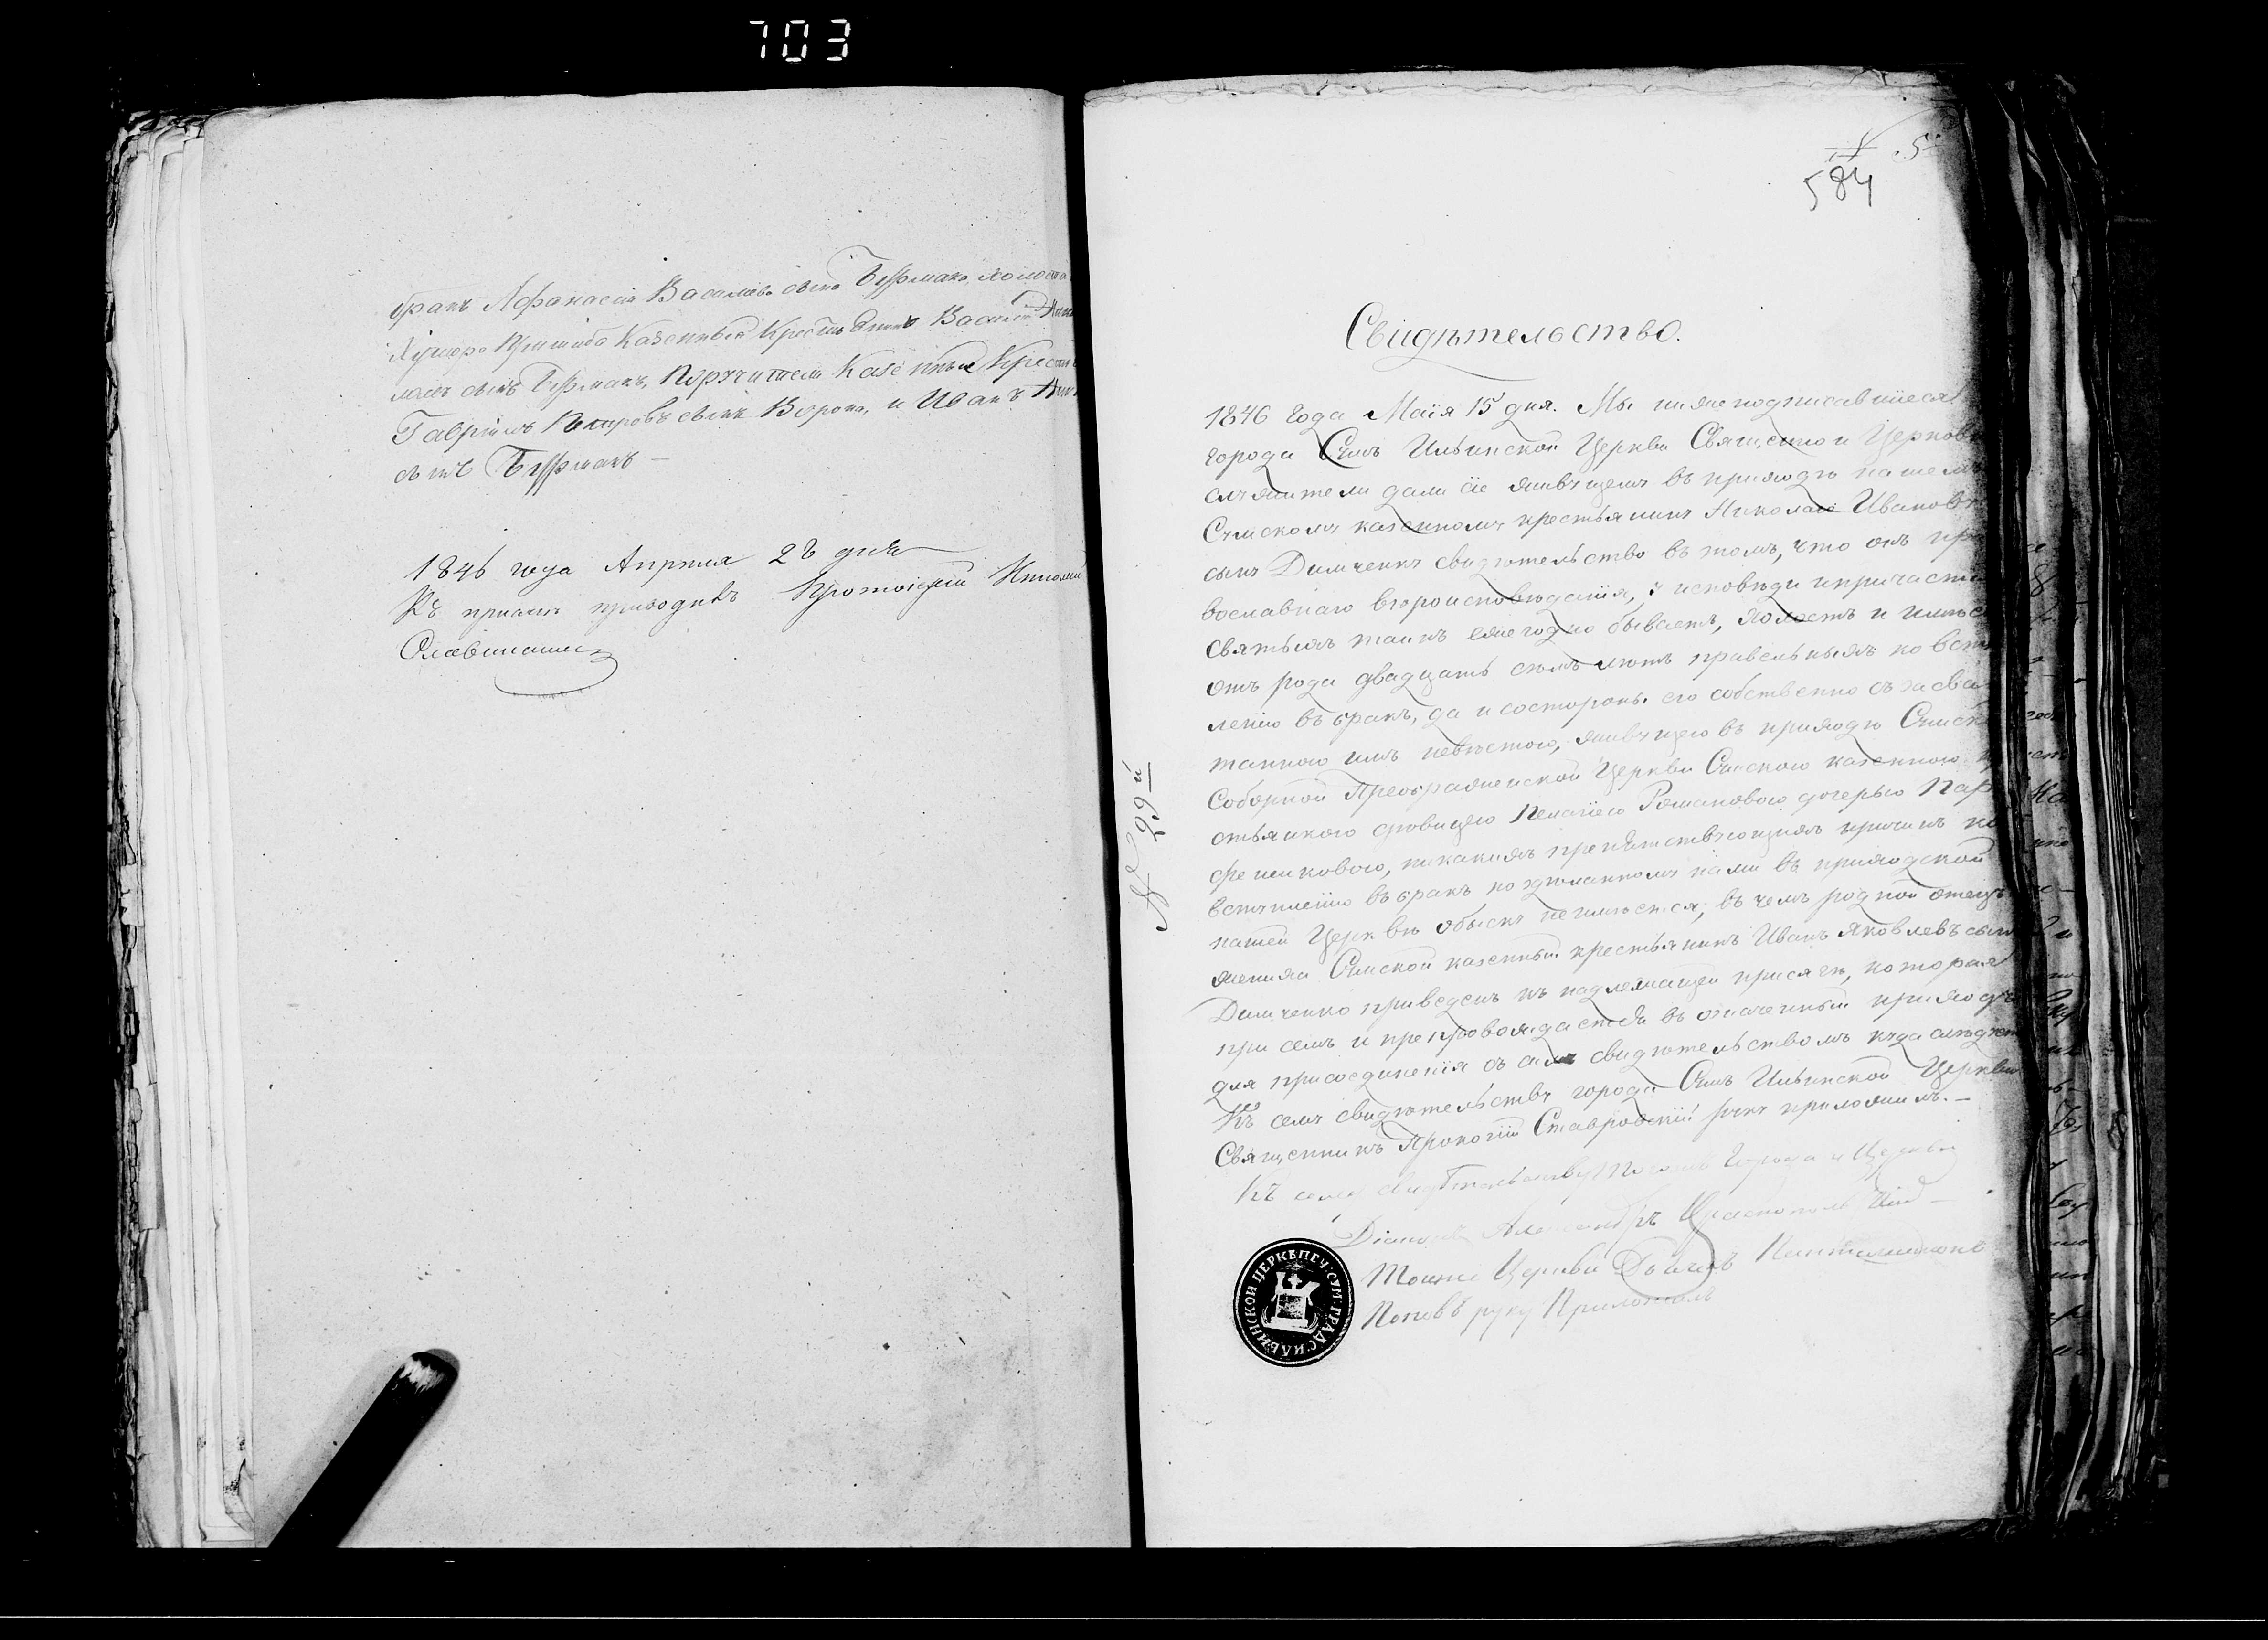 703
братъ Афанасій Васильевъ сынъ Бурмака, холоста
Хутора Казенный Крестьянинъ Василій
сынъ Бурмакъ, Поручители Казенные Крест
Гавріилъ Петровъ сынъ Ворона, и Иванъ
сынъ Бурмакъ —
1846 года Апреля 28 дня
Къ приводилъ Протоіерей Николай
584
Свидѣтельство.
1846 года Маія 15 дня. Мы нижеподписавшіеся
города Сумъ Ильинской Церкви Священно и Церковно
служители дали сіе живущему въ приходѣ нашемъ
Сумскому казенному крестьянину Николаю Иванову
сыну Димченку свидѣтельство въ томъ, что онъ пра
вославнаго вѣроисповѣданія, у исповѣди и причастія
святыхъ таинъ ежегодно бываетъ, холостъ и имѣетъ
отъ рода двадцать семъ лѣтъ правельныхъ ко всту
пленію въ бракъ, да и состороны его собственно съ засва
танною имъ невѣстою, живущею въ приходѣ Сумской
Соборной Преображенской Церкви Сумскою казенною кре
стьянкою дѣвицею Пелагіею Романовою дочерью Пар
фененковою, никакихъ препятствующихъ причинъ ко
вступленію въ бракъ по здѣланному нами въ приходской
нашей Церквѣ обыску неимѣется, въ чемъ родной отецъ
жениха Сумской казенный крестьянинъ Иванъ Яковлевъ сынъ
Димченко приведенъ къ надлежащей присягѣ, которая
при семъ и препровождается въ означенный приходъ
для присоединенія съ симъ свидѣтельствомъ куда слѣдуетъ
Къ сему свидѣтельству города Сумъ Ильинской Церкви
Священникъ Прокопій Ставровскій руку приложилъ. —
Къ сему свидѣтельству города и Церкви
Діаконъ Александръ
Тоижъ Церкви Дьячокъ Пантелеимонъ
Поповъ руку Приложилъ
№ 29й
ПЕЧ: СУМ: ГРАД: ИЛЬИНСКОЙ ЦЕРКВ